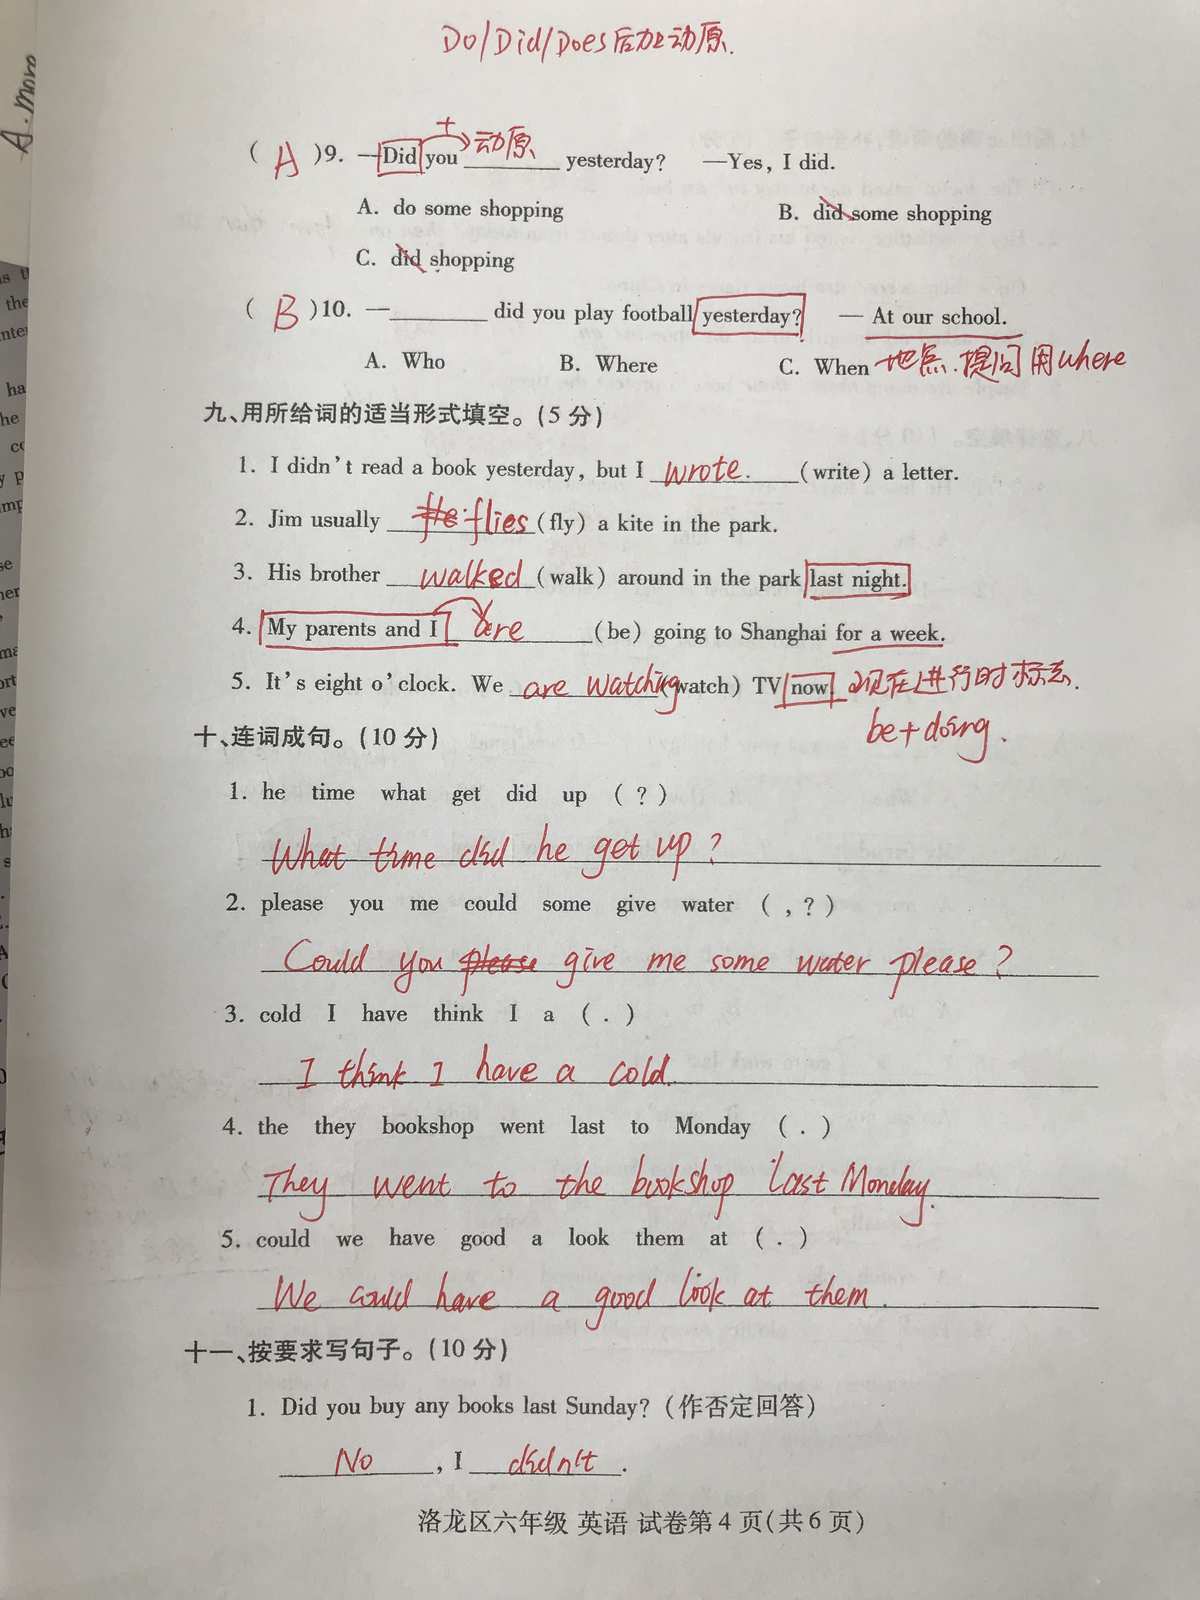 Do/Did/Does后加动原.
A. more
+
( A )9. —Did you 动原 yesterday? —Yes, I did.
A. do some shopping B. did some shopping
C. did shopping
( B )10. —________ did you play football yesterday? — At our school.
A. Who B. Where C. When 地点.提问用where
九、用所给词的适当形式填空。(5 分)
1. I didn't read a book yesterday, but I wrote. (write) a letter.
2. Jim usually flies (fly) a kite in the park.
3. His brother walked (walk) around in the park last night.
4. My parents and I are (be) going to Shanghai for a week.
5. It's eight o'clock. We are watching (watch) TV now. 现在进行时标志.
be+doing.
十、连词成句。(10 分)
1. he time what get did up ( ? )
What time did he get up ?
2. please you me could some give water ( , ? )
Could you please give me some water please ?
3. cold I have think I a ( . )
I think I have a cold.
4. the they bookshop went last to Monday ( . )
They went to the bookshop last Monday.
5. could we have good a look them at ( . )
We could have a good look at them .
十一、按要求写句子。(10 分)
1. Did you buy any books last Sunday? (作否定回答)
No , I didn't .
洛龙区六年级 英语 试卷第 4 页(共 6 页)